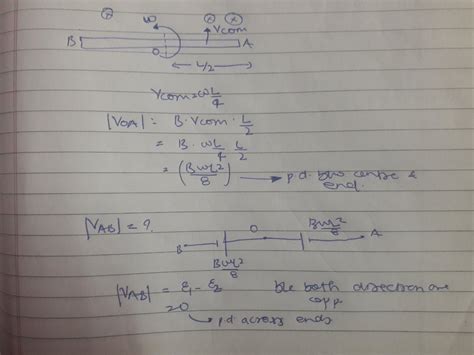 ω
Vcom
B
O
A
L/2
Vcom = ωL/4
|VOA| = B · Vcom · L/2
= B · ωL/4 · L/2
= (BωL²/8) → p.d. b/w centre & end.
|VAB| = ?
B
O
BωL²/8
A
BωL²/8
|VAB| = ε1 - ε2 b/c both direction are opp
= 0
→ p.d across ends